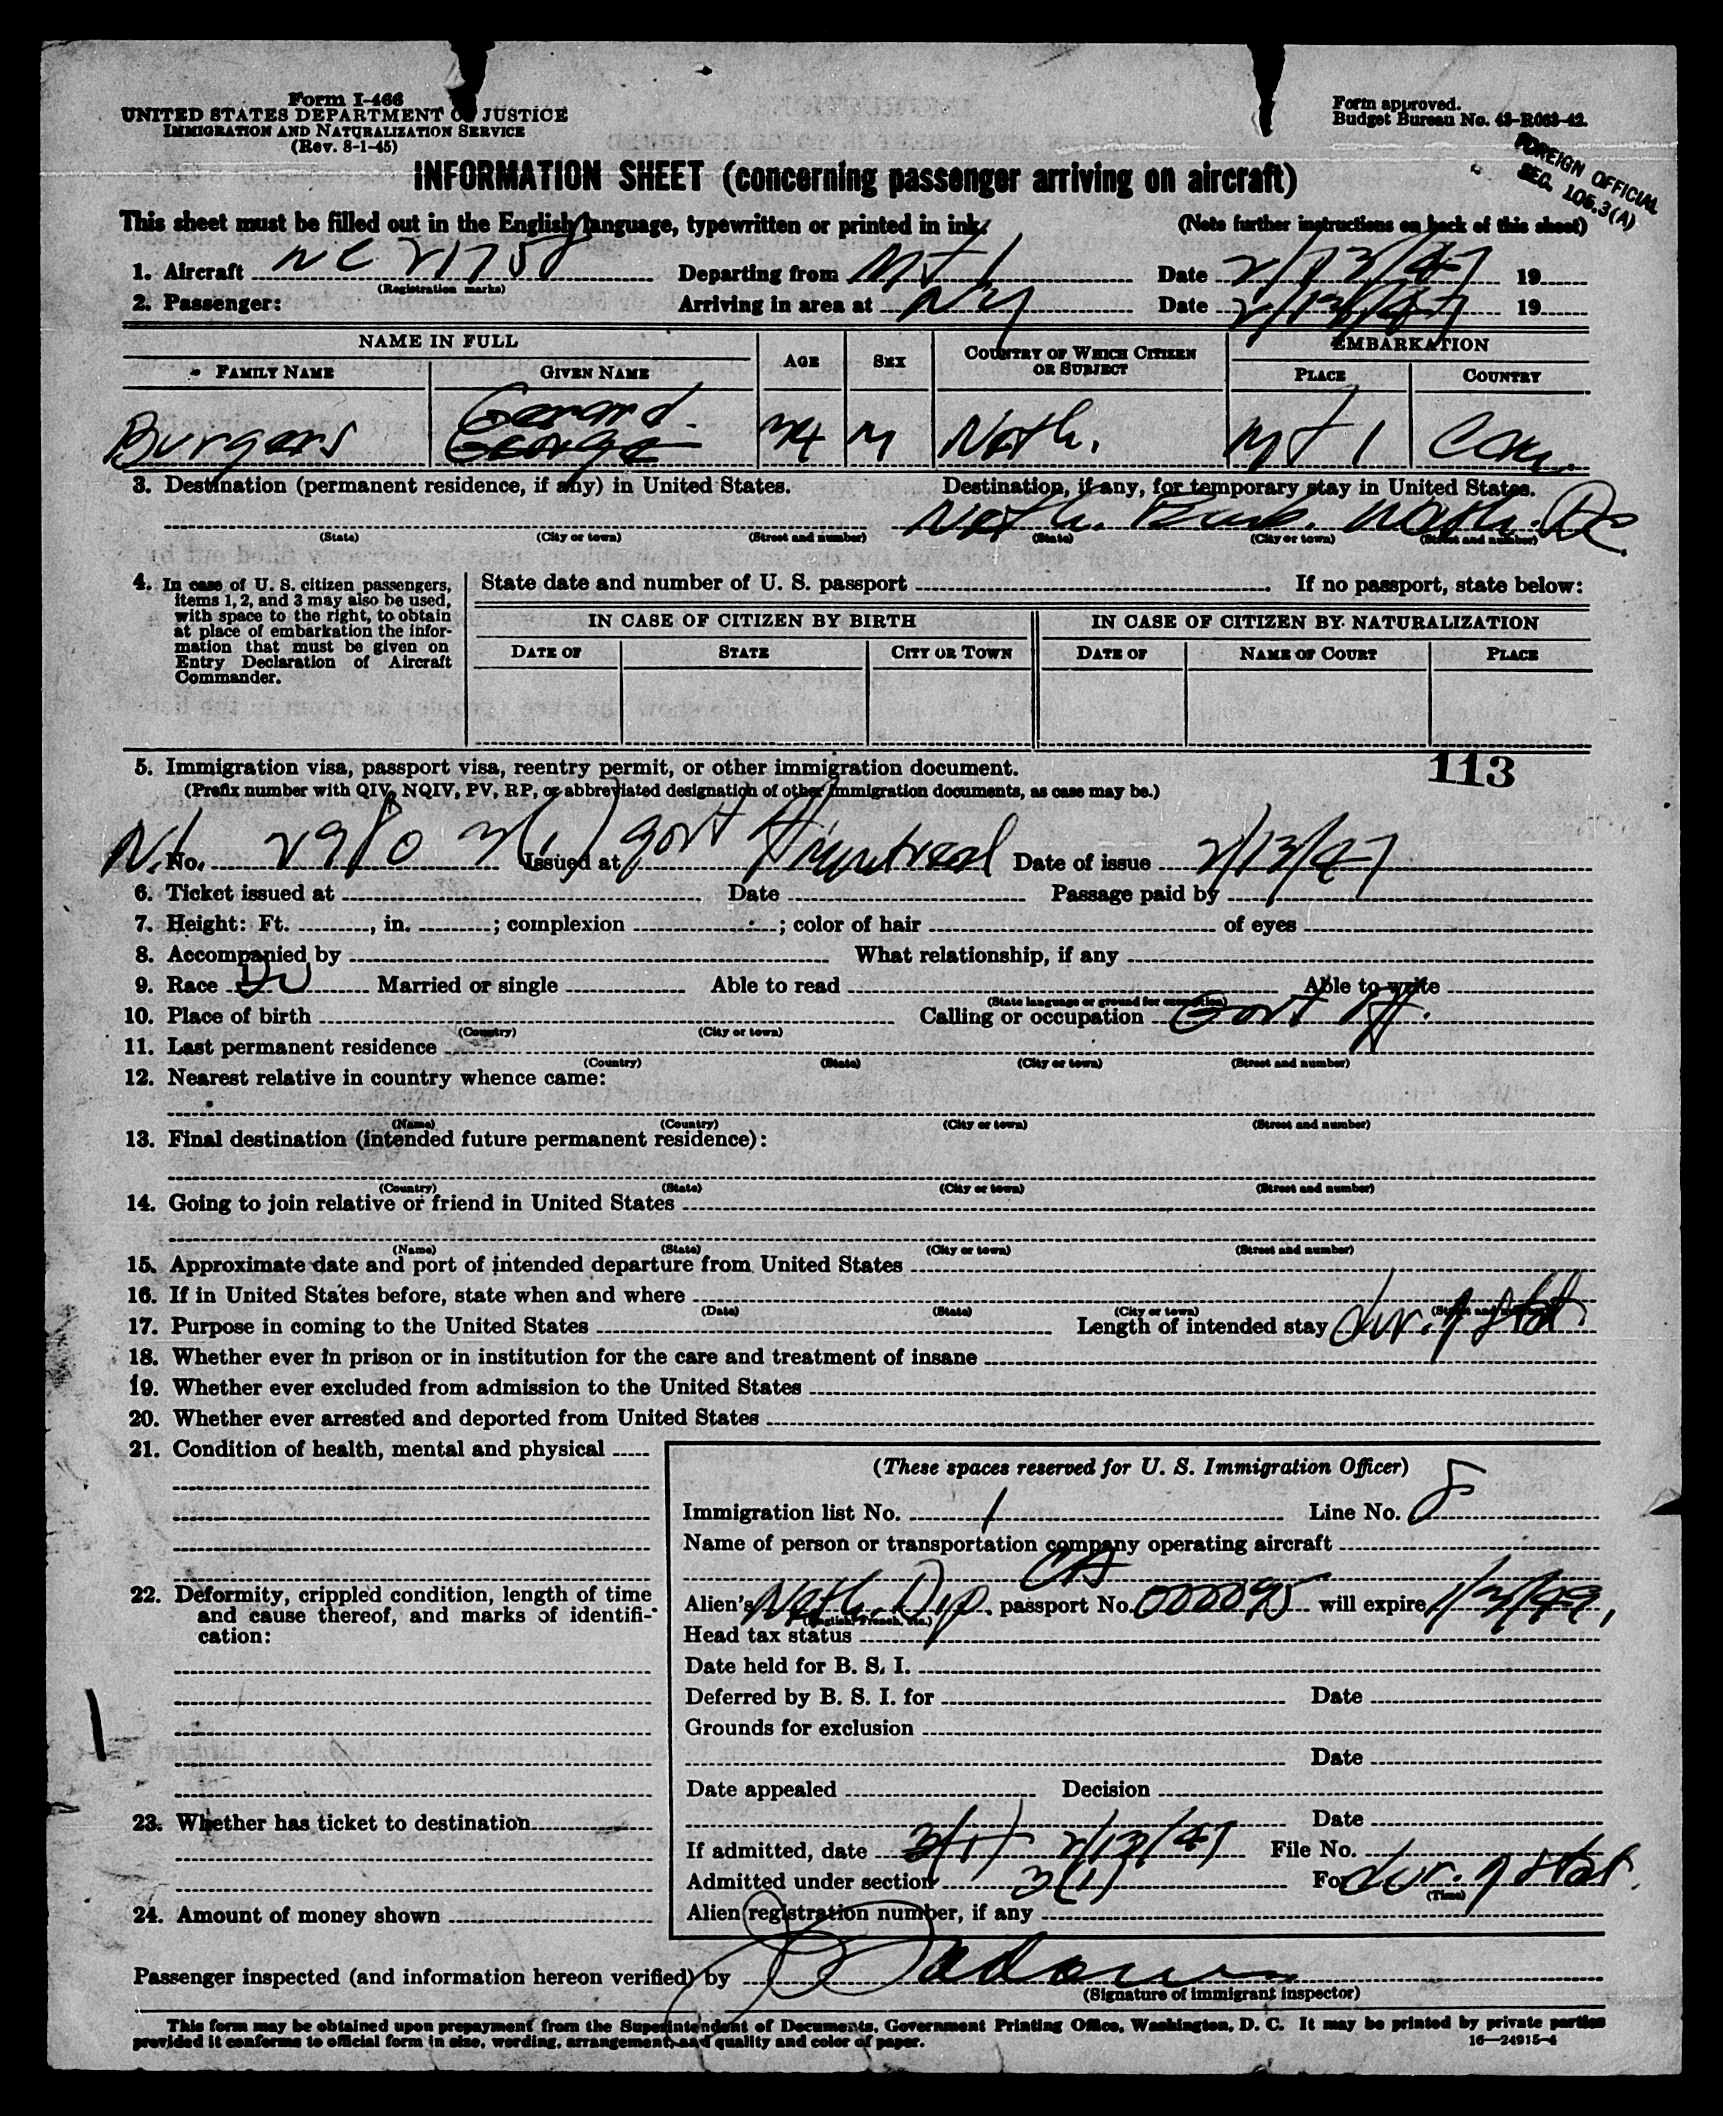 Form I-466
UNITED STATES DEPARTMENT OF JUSTICE
IMMIGRATION AND NATURALIZATION SERVICE
(Rev. 8-1-45)
Form approved.
Budget Bureau No. 43-R063-42.
FOREIGN OFFICIAL
SEC. 105.3(A)
INFORMATION SHEET (concerning passenger arriving on aircraft)
This sheet must be filled out in the English language, typewritten or printed in ink. (Note further instructions on back of this sheet)
1. Aircraft NC 21758 Departing from Mtl Date 2/13/47 19
(Registration marks)
2. Passenger: Arriving in area at NY Date 2/13/47 19
NAME IN FULL AGE SEX COUNTRY OF WHICH CITIZEN OR SUBJECT EMBARKATION
FAMILY NAME GIVEN NAME PLACE COUNTRY
Gerard
Burgers George 34 M Neth. Mtl Can.
3. Destination (permanent residence, if any) in United States. Destination, if any, for temporary stay in United States.
Neth. Emb. Wash. DC
(State) (City or town) (Street and number) (State) (City or town) (Street and number)
4. In case of U. S. citizen passengers, items 1, 2, and 3 may also be used, with space to the right, to obtain at place of embarkation the information that must be given on Entry Declaration of Aircraft Commander.
State date and number of U. S. passport If no passport, state below:
IN CASE OF CITIZEN BY BIRTH IN CASE OF CITIZEN BY NATURALIZATION
DATE OF STATE CITY OR TOWN DATE OF NAME OF COURT PLACE
113
5. Immigration visa, passport visa, reentry permit, or other immigration document.
(Prefix number with QIV, NQIV, PV, RP, or abbreviated designation of other immigration documents, as case may be.)
No. 2980 3(1) Issued at Montreal Date of issue 2/13/47
6. Ticket issued at Date Passage paid by
7. Height: Ft. , in. ; complexion ; color of hair of eyes
8. Accompanied by What relationship, if any
9. Race Du Married or single Able to read Able to write
(State language or ground for exemption)
10. Place of birth Calling or occupation Govt
(Country) (City or town)
11. Last permanent residence
(Country) (State) (City or town) (Street and number)
12. Nearest relative in country whence came:
(Name) (Country) (City or town) (Street and number)
13. Final destination (intended future permanent residence):
(Country) (State) (City or town) (Street and number)
14. Going to join relative or friend in United States
(Name) (State) (City or town) (Street and number)
15. Approximate date and port of intended departure from United States
16. If in United States before, state when and where
(Date) (State) (City or town) (Street and number)
17. Purpose in coming to the United States Length of intended stay dur. of stat.
18. Whether ever in prison or in institution for the care and treatment of insane
19. Whether ever excluded from admission to the United States
20. Whether ever arrested and deported from United States
21. Condition of health, mental and physical
22. Deformity, crippled condition, length of time and cause thereof, and marks of identification:
23. Whether has ticket to destination
24. Amount of money shown
(These spaces reserved for U. S. Immigration Officer)
Immigration list No. 1 Line No. 8
Name of person or transportation company operating aircraft
Alien's Neth. Dip. passport No. 000095 will expire 1/3/49,
(English, French, etc.)
Head tax status
Date held for B. S. I.
Deferred by B. S. I. for Date
Grounds for exclusion
Date
Date appealed Decision
Date
If admitted, date 2/13/47 File No.
Admitted under section 3(1) For dur. of stat.
(Time)
Alien registration number, if any
Passenger inspected (and information hereon verified) by
(Signature of immigrant inspector)
This form may be obtained upon prepayment from the Superintendent of Documents, Government Printing Office, Washington, D. C. It may be printed by private parties
provided it conforms to official form in size, wording, arrangement, and quality and color of paper. 16—24915-4